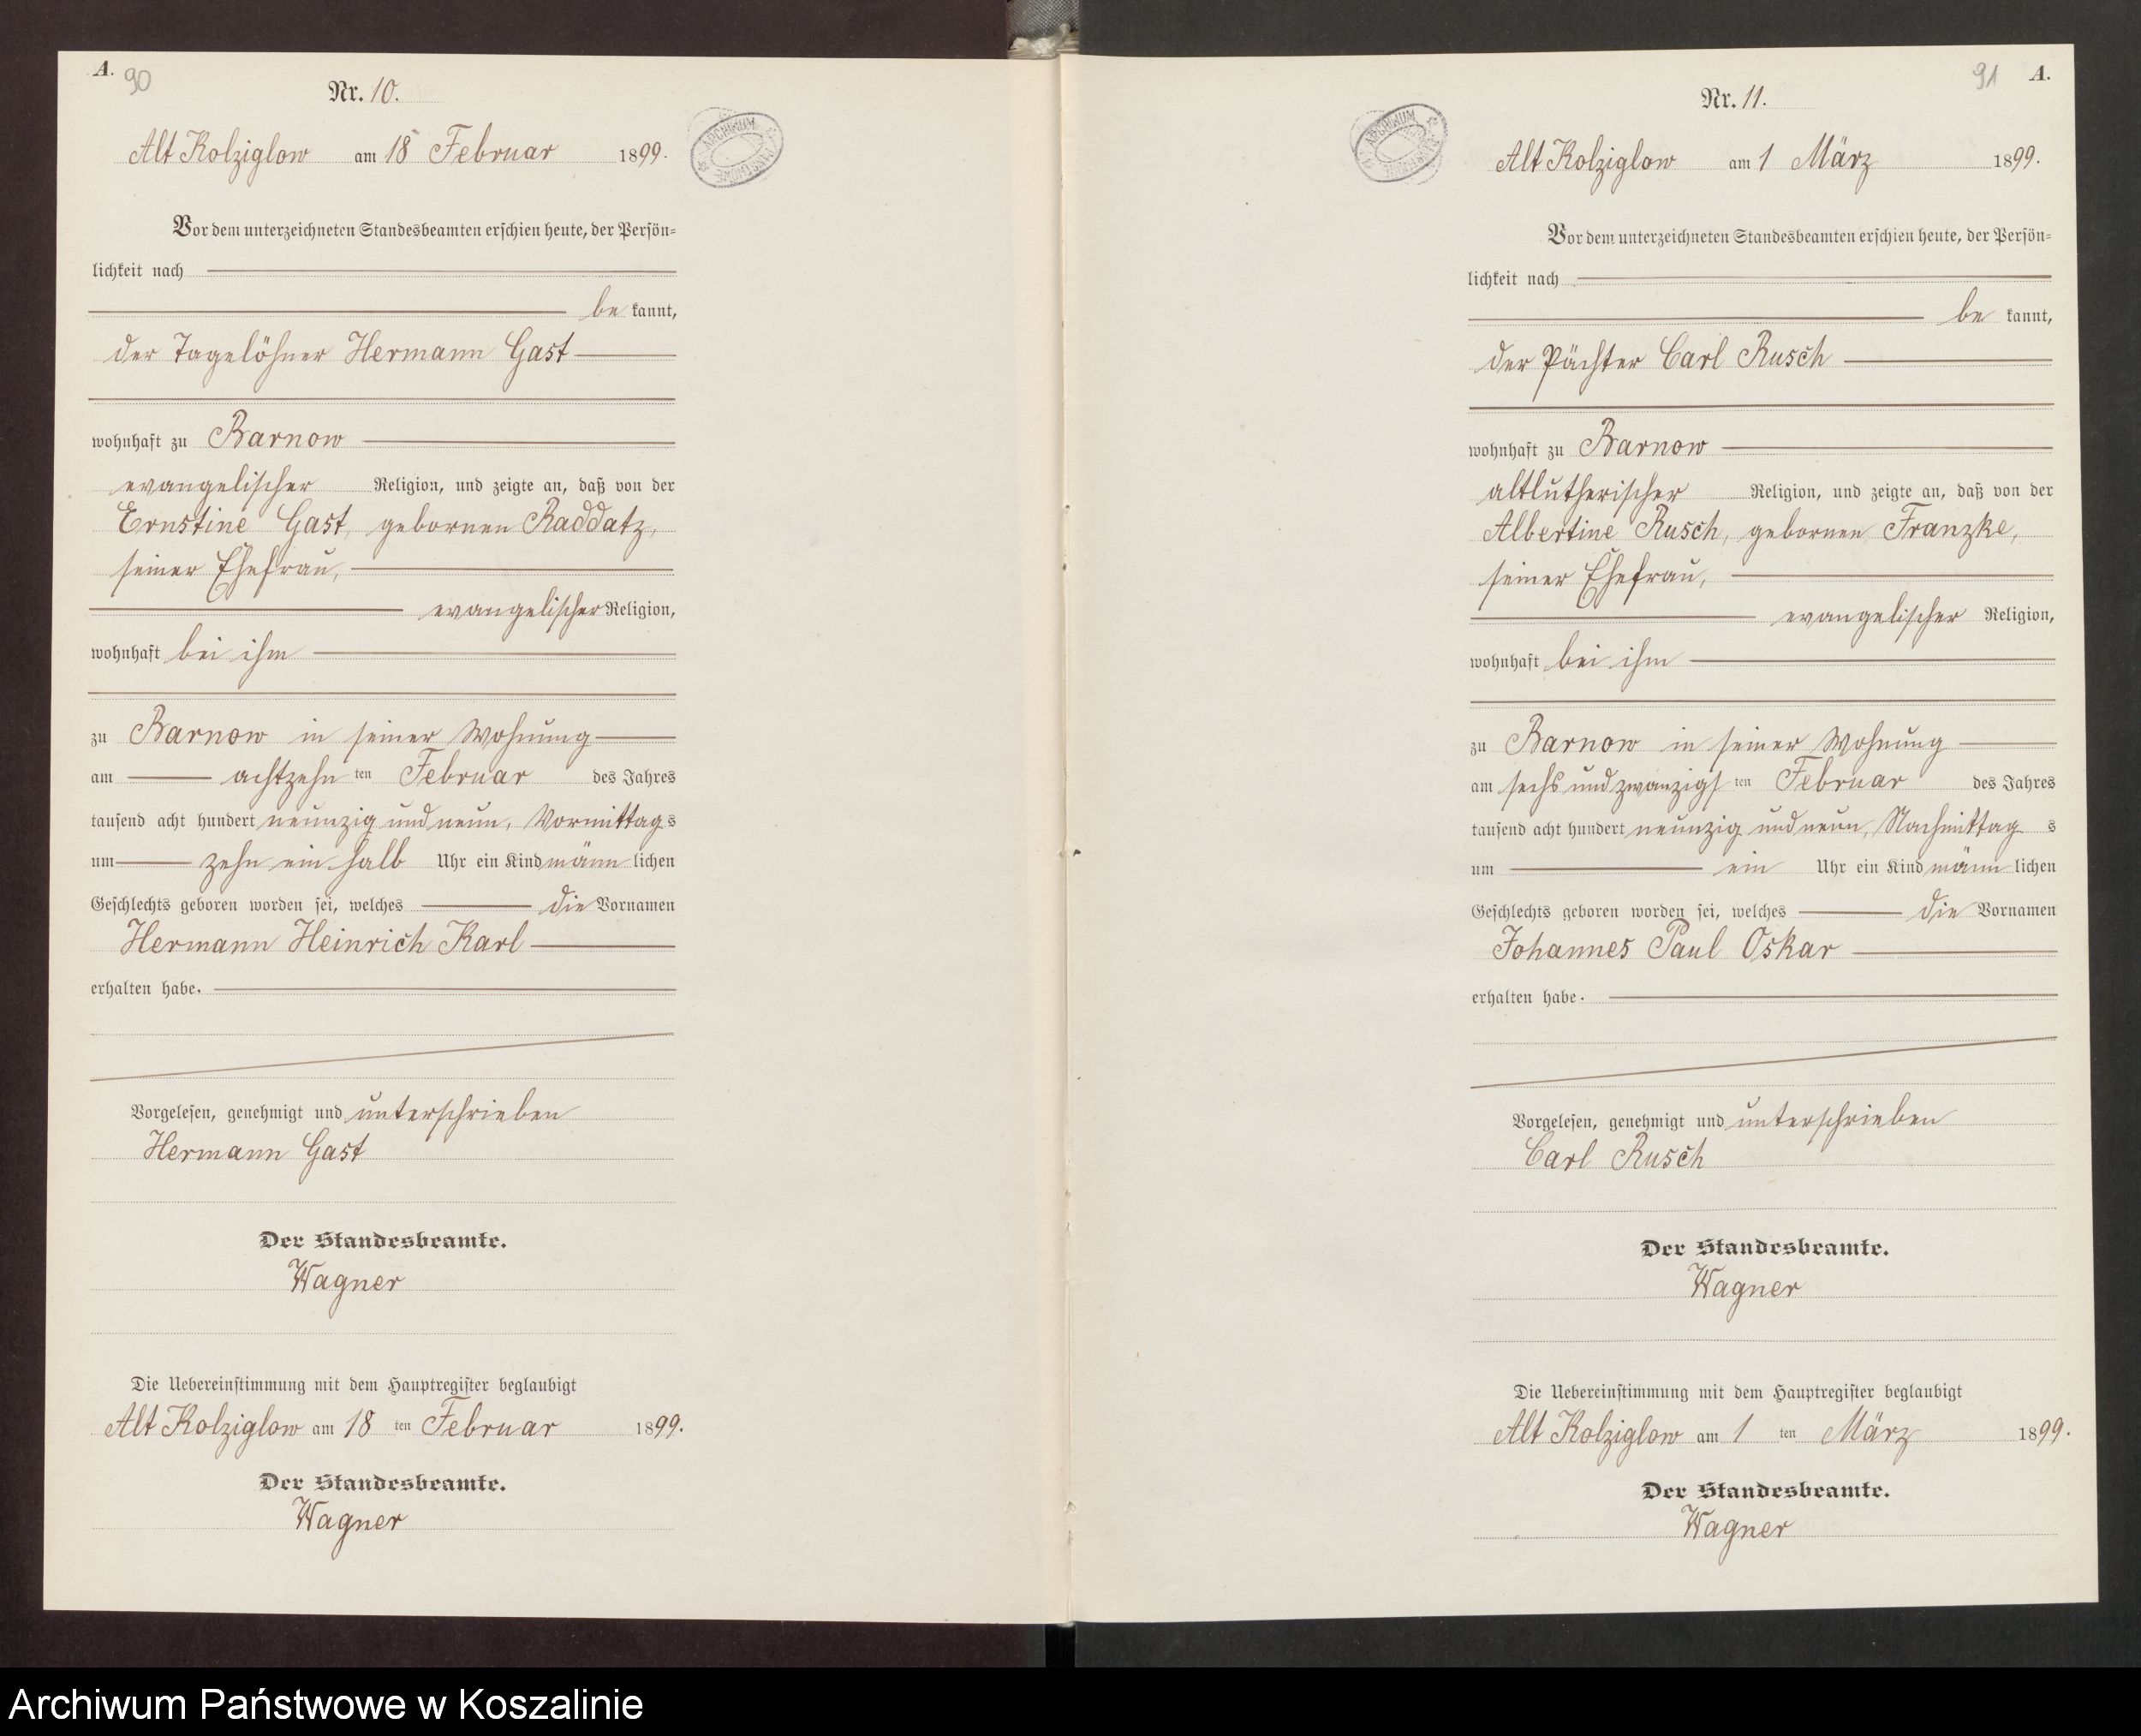 A.
90
Nr. 10.
Alt Kolziglow am 18 Februar 1899.
ARCHIWUM
Vor dem unterzeichneten Standesbeamten erschien heute, der Persön-
lichkeit nach
be kannt,
der Tagelöhner Hermann Gast
wohnhaft zu Barnow
evangelischer Religion, und zeigte an, daß von der
Ernstine Gast, gebornen Raddatz,
seiner Ehefrau,
evangelischer Religion,
wohnhaft bei ihm
zu Barnow in seiner Wohnung
am achtzehn ten Februar des Jahres
tausend acht hundert neunzig und neun, Vormittag s
um zehn ein halb Uhr ein Kind männ lichen
Geschlechts geboren worden sei, welches die Vornamen
Hermann Heinrich Karl
erhalten habe.
Vorgelesen, genehmigt und unterschrieben
Hermann Gast
Der Standesbeamte.
Wagner
Die Uebereinstimmung mit dem Hauptregister beglaubigt
Alt Kolziglow am 18 ten Februar 1899.
Der Standesbeamte.
Wagner
91
A.
Nr. 11.
Alt Kolziglow am 1 März 1899.
ARCHIWUM
Vor dem unterzeichneten Standesbeamten erschien heute, der Persön-
lichkeit nach
be kannt,
der Pächter Carl Rusch
wohnhaft zu Barnow
altlutherischer Religion, und zeigte an, daß von der
Albertine Rusch, gebornen Franzke,
seiner Ehefrau,
evangelischer Religion,
wohnhaft bei ihm
zu Barnow in seiner Wohnung
am sechs und zwanzigs ten Februar des Jahres
tausend acht hundert neunzig und neun, Nachmittag s
um ein Uhr ein Kind männ lichen
Geschlechts geboren worden sei, welches die Vornamen
Johannes Paul Oskar
erhalten habe.
Vorgelesen, genehmigt und unterschrieben
Carl Rusch
Der Standesbeamte.
Wagner
Die Uebereinstimmung mit dem Hauptregister beglaubigt
Alt Kolziglow am 1 ten März 1899.
Der Standesbeamte.
Wagner
Archiwum Państwowe w Koszalinie